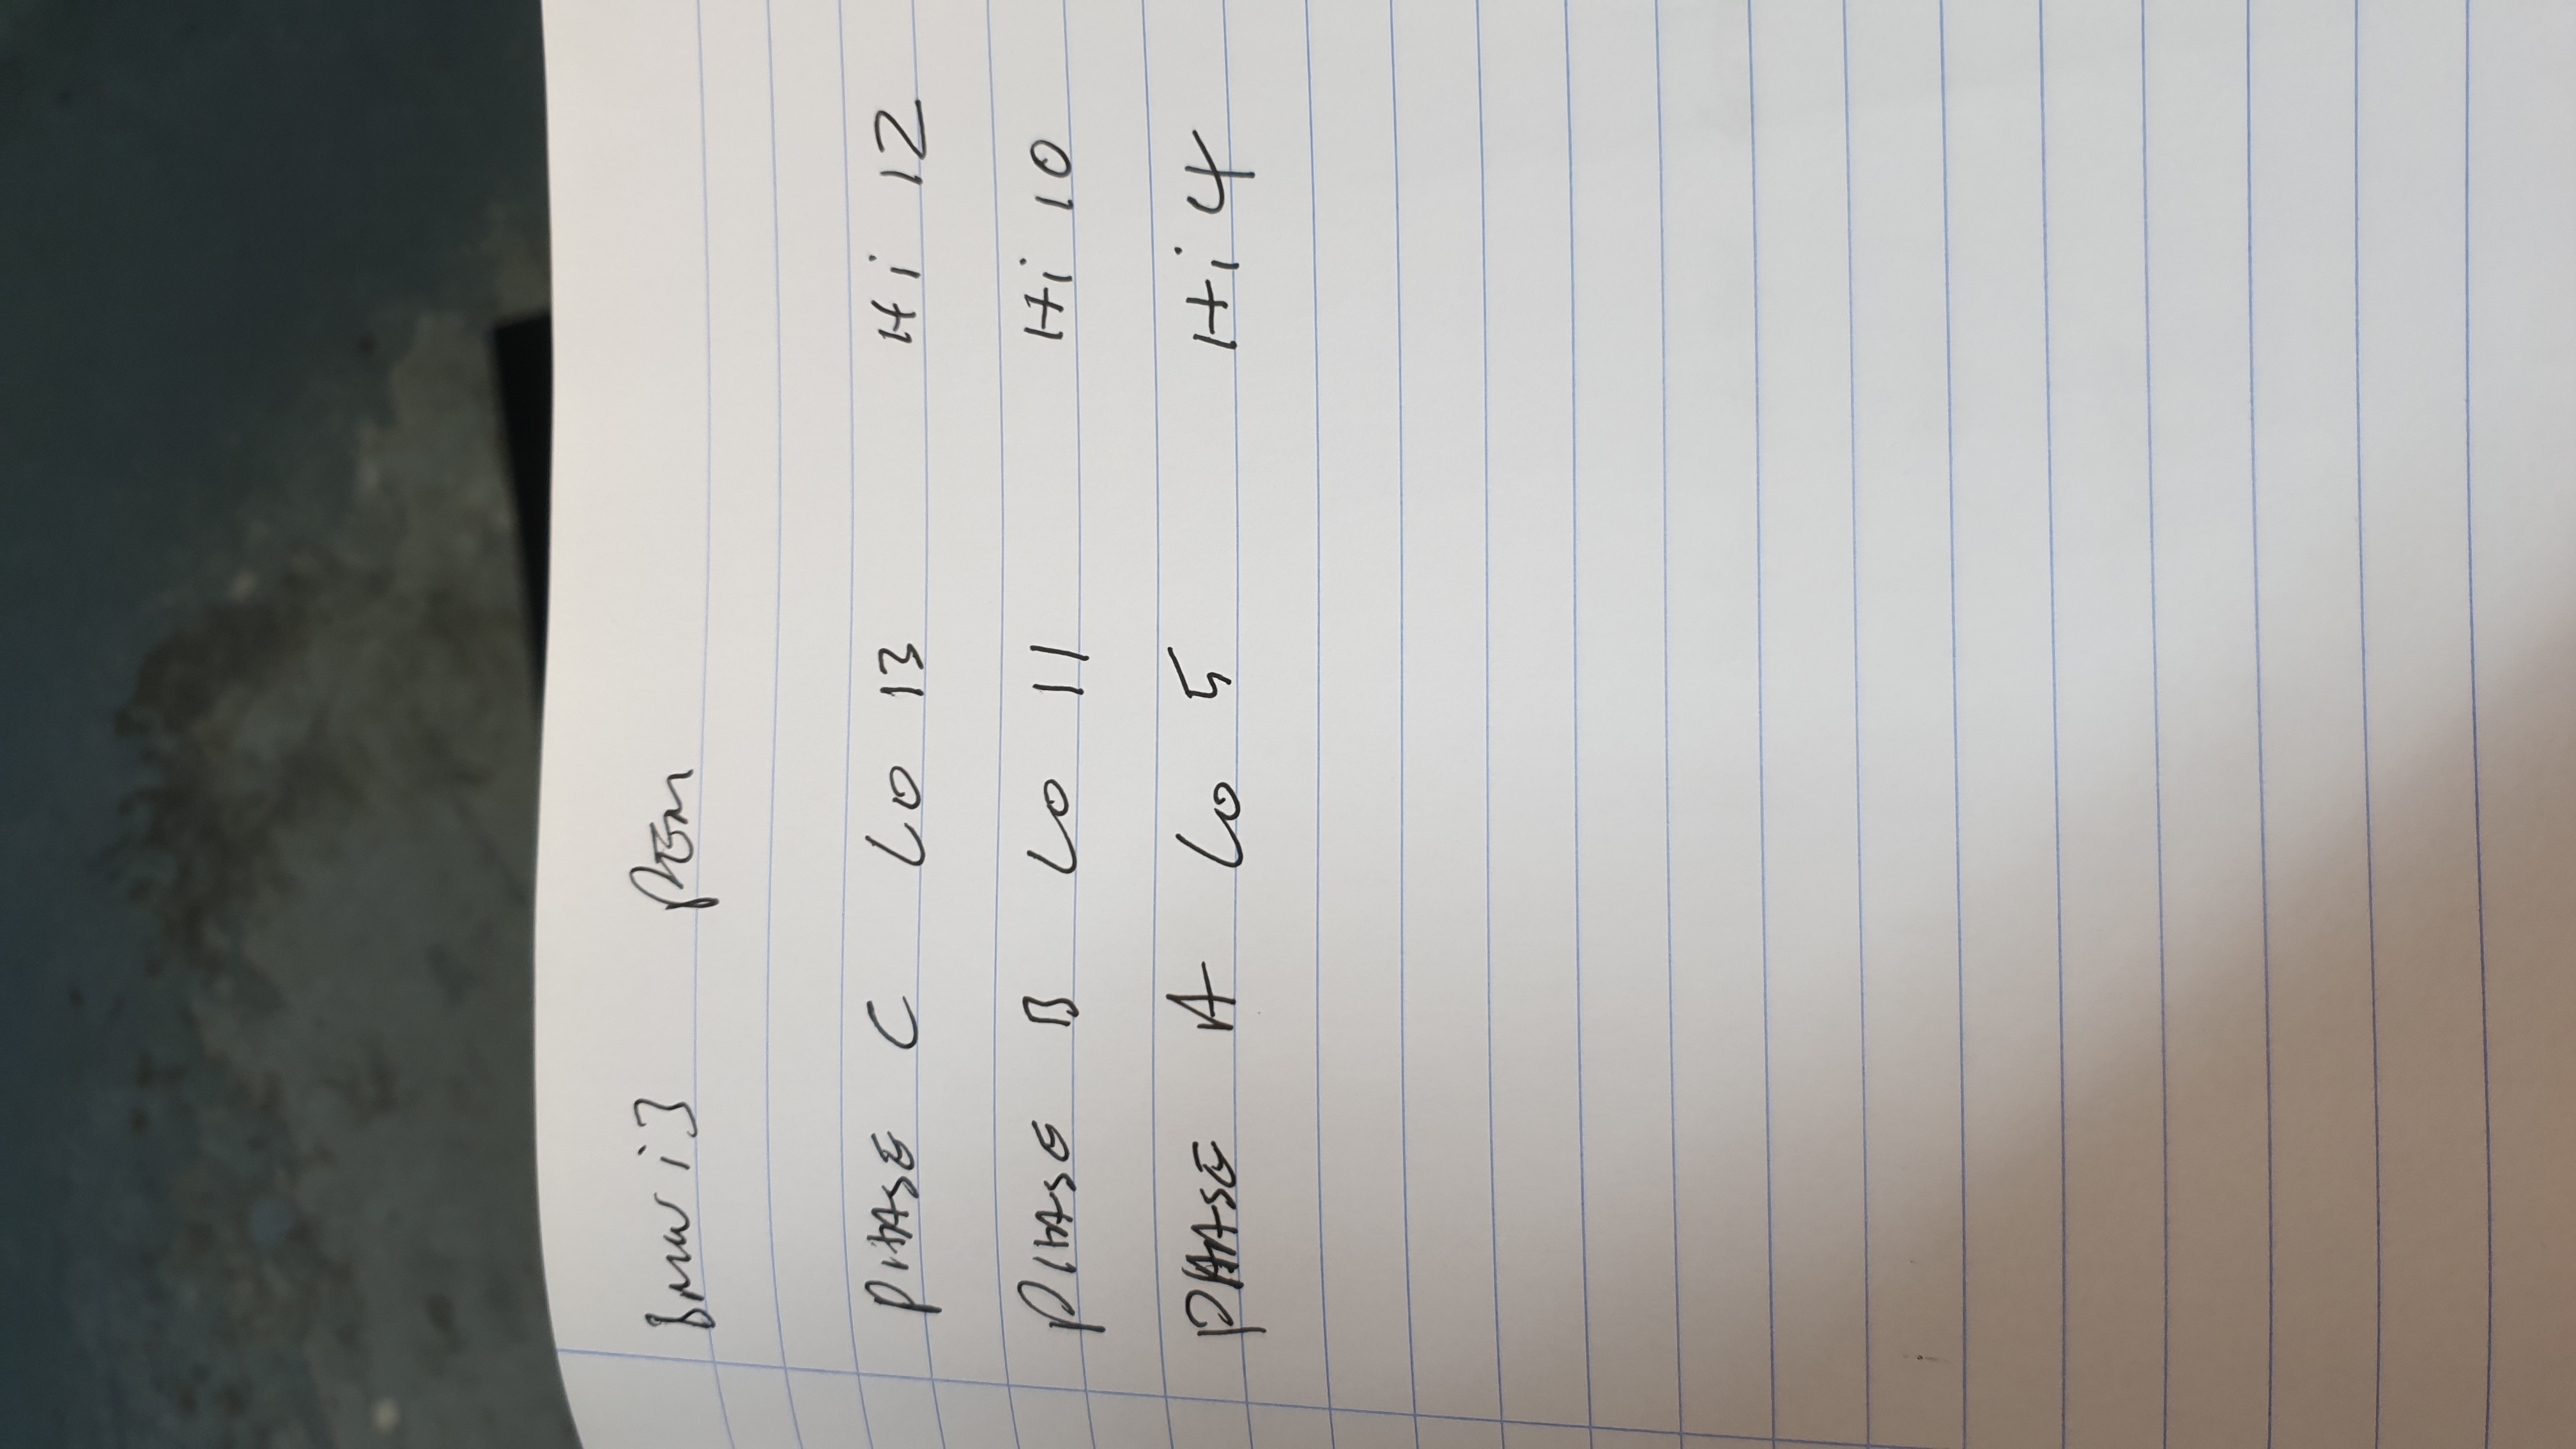 BMW i3 PEM
PHASE C LO 13 Hi 12
PHASE B LO 11 Hi 10
PHASE A LO 5 Hi 4